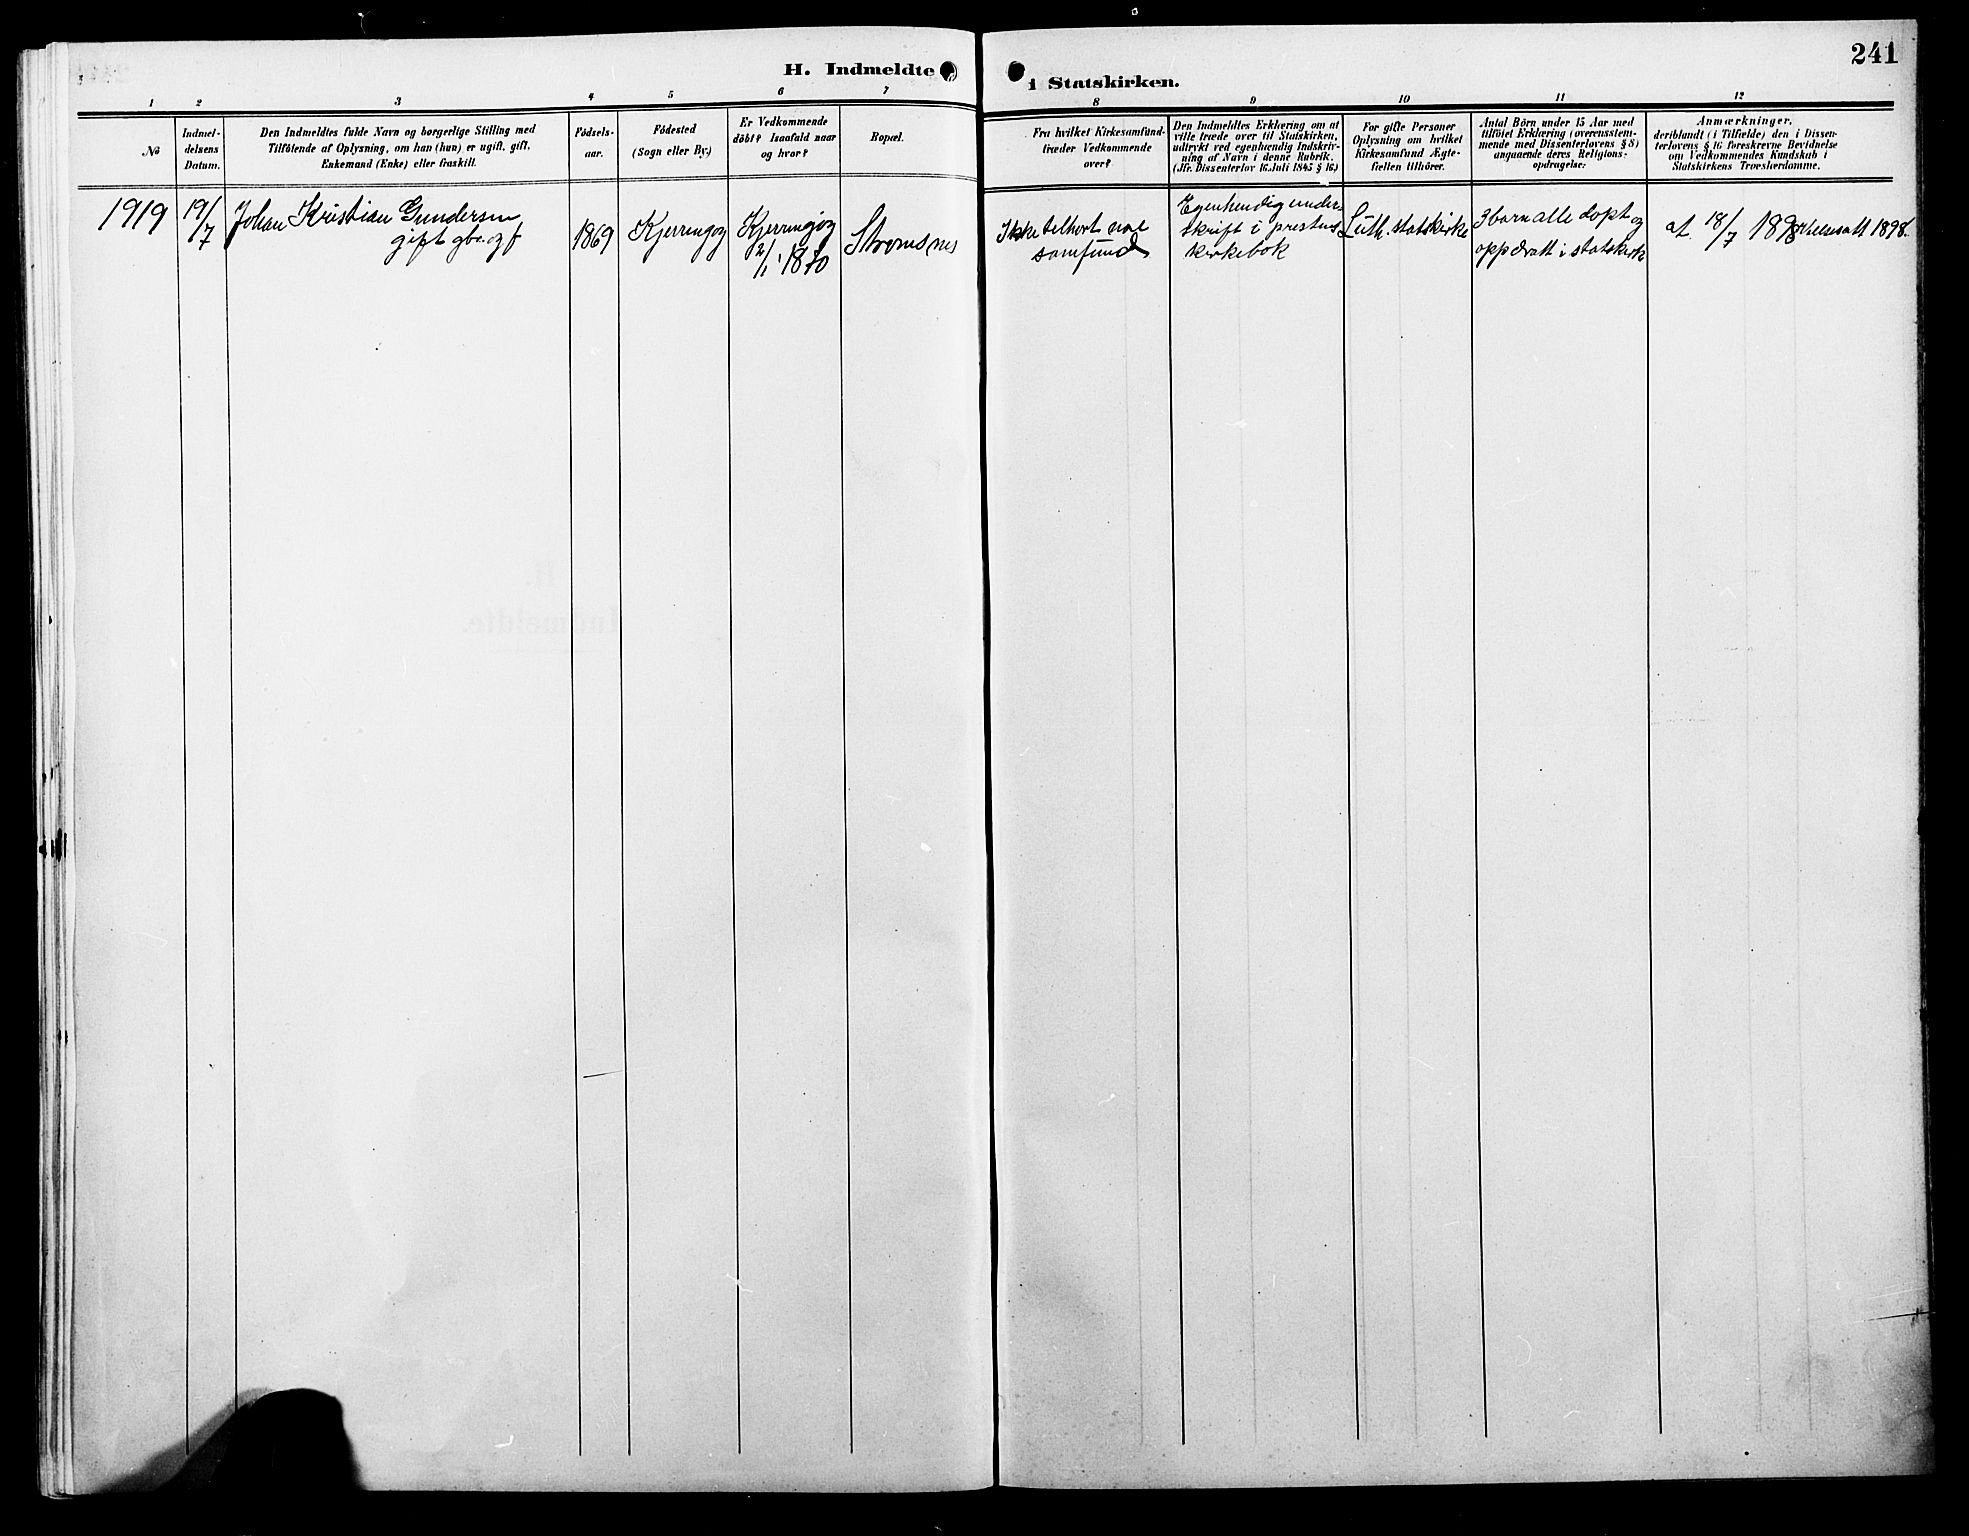 241
H. Indmeldte i Statskirken.
1 2 3 4 5 6 7 8 9 10 11 12
No
Indmel-
delsens
Datum.
Den Indmeldtes fulde Navn og borgerlige Stilling med
Tilföiende af Oplysning, om han (hun) er ugift, gift,
Enkemand (Enke) eller fraskilt.
Födsels-
aar.
Födested
(Sogn eller By.)
Er Vedkommende
döbt? Isaafald naar
og hvor?
Bopæl.
Fra hvilket Kirkesamfund
træder Vedkommende
over?
Den Indmeldtes Erklæring om at
ville træde over til Statskirken,
udtrykt ved egenhændig Indskriv-
ning af Navn i denne Rubrik.
(Jfr. Dissenterlov 16. Juli 1845 § 16.)
For gifte Personer
Oplysning om hvilket
Kirkesamfund Ægte-
fællen tilhörer.
Antal Börn under 15 Aar med
tilföiet Erklæring (overensstem-
mende med Dissenterlovens § 8)
angaaende deres Religions-
opdragelse:
Anmærkninger,
deriblandt (i Tilfælde) den i Dissen-
terlovens § 16 foreskrevne Bevidnelse
om Vedkommendes Kundskab i
Statskirkens Troeslærdomme.
1919
19/7
Johan Kristian Gundersen
gift gbr. og f
1869
Kjerringøy
Kjerringøy
2/1 1870
Strømsnes
Ikke tilhørt noe
samfund
Egenhendig under-
skrift i prestens
kirkebok
Luth. statskirke
3 barn alle døpt og
oppdratt i statskirk
at. 18/7 1898
1898.